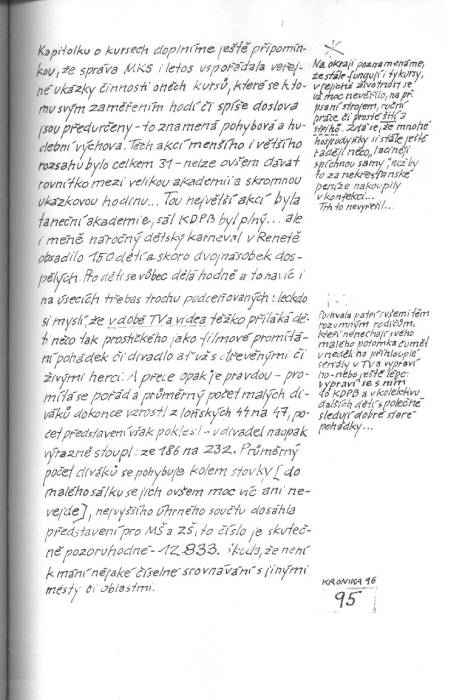 Kapitolku o kursech doplníme ještě připomín-
kou, že správa MKS i letos uspořádala veřej-
né ukázky činnosti oněch kursů, které se k to-
mu svým zaměřením hodí či spíše doslova
jsou předurčeny - to znamená pohybová a hu-
dební výchova. Těch akcí menšího i většího
rozsahu bylo celkem 31 - nelze ovšem dávat
rovnítko mezi velikou akademii a skromnou
ukázkovou hodinu... Tou největší akcí byla
taneční akademie, sál KDPB byl plný... ale
i méně náročný dětský karneval v Renetě
obsadilo 150 dětí a skoro dvojnásobek dos-
pělých. Pro děti se vůbec dělá hodně a to navíc i
na úsecích třebas trochu podceňovaných: leckdo
si myslí, že v době TV a videa těžko přiláká dě-
ti něco tak prostického jako filmové promítá-
ní pohádek či divadlo ať už s dřevěnými či
živými herci. A přece opak je pravdou - pro-
mítá se pořád a průměrný počet malých di-
váků dokonce vzrostl z loňských 44 na 47, po-
čet představení však poklesl - u divadel naopak
výrazně stoupl: ze 186 na 232. Průměrný
počet diváků se pohybuje kolem stovky [do
malého sálku se jich ovšem moc víc ani ne-
vejde], nejvyššího úhrnného součtu dosáhla
představení pro MŠ a ZŠ, to číslo je skuteč-
ně pozoruhodné - 12.833. Škoda, že není
k mání nějaké číselné srovnávání s jinými
městy či oblastmi.
Na okraji poznamenáme,
že stále fungují i ty kursy,
v jejichž životnost se
už moc nevěřilo, na př.
psaní strojem, ruční
práce či prostě šití a
střihů. Zdá se, že mnohé
hospodyňky si stále ještě
raději něco "lacinějí
spíchnou samy", než by
to za nekřesťanské
peníze nakoupily
v konfekci...
Trh to nevyřešil...
Pochvala patří i všem těm
rozumným rodičům,
kteří nenechají svého
malého potomka čumět
v neděli na přihlouplé
seriály v TV a vypraví
ho - nebo ještě lépe:
vypraví se s ním
do KDPB a v kolektivu
dalších dětí společně
sledují dobré staré
pohádky...
KRONIKA 16
95